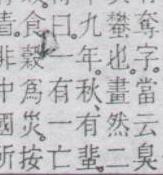 奪字。當云臭
蠜也。畫然二
九年秋、有蜚。
曰。一有一亡
食穀爲災。按
非中國所